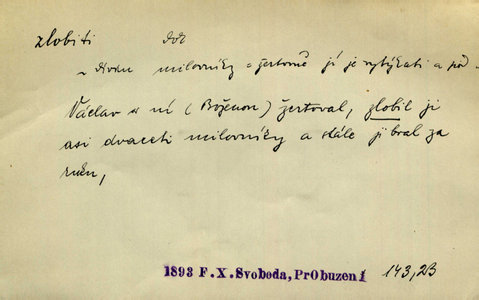 zlobiti dok
~ dívku milovníky = žertovně jí je vytýkati a pod.
Václav s ní (Boženou) žertoval, zlobil ji
asi dvaceti milovníky a stále ji bral za
ruku,
1893 F.X.Svoboda, PrObuzení 143,23